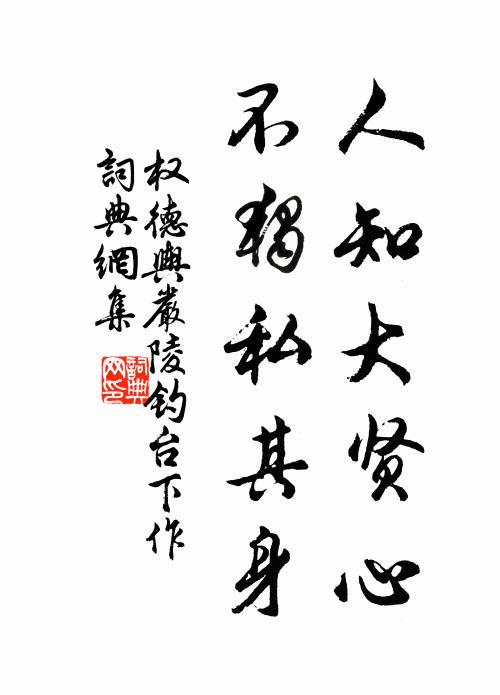 人知大贤心
不独私其身
权德舆嚴陵钓台下作
詞典網集
詞典
网印